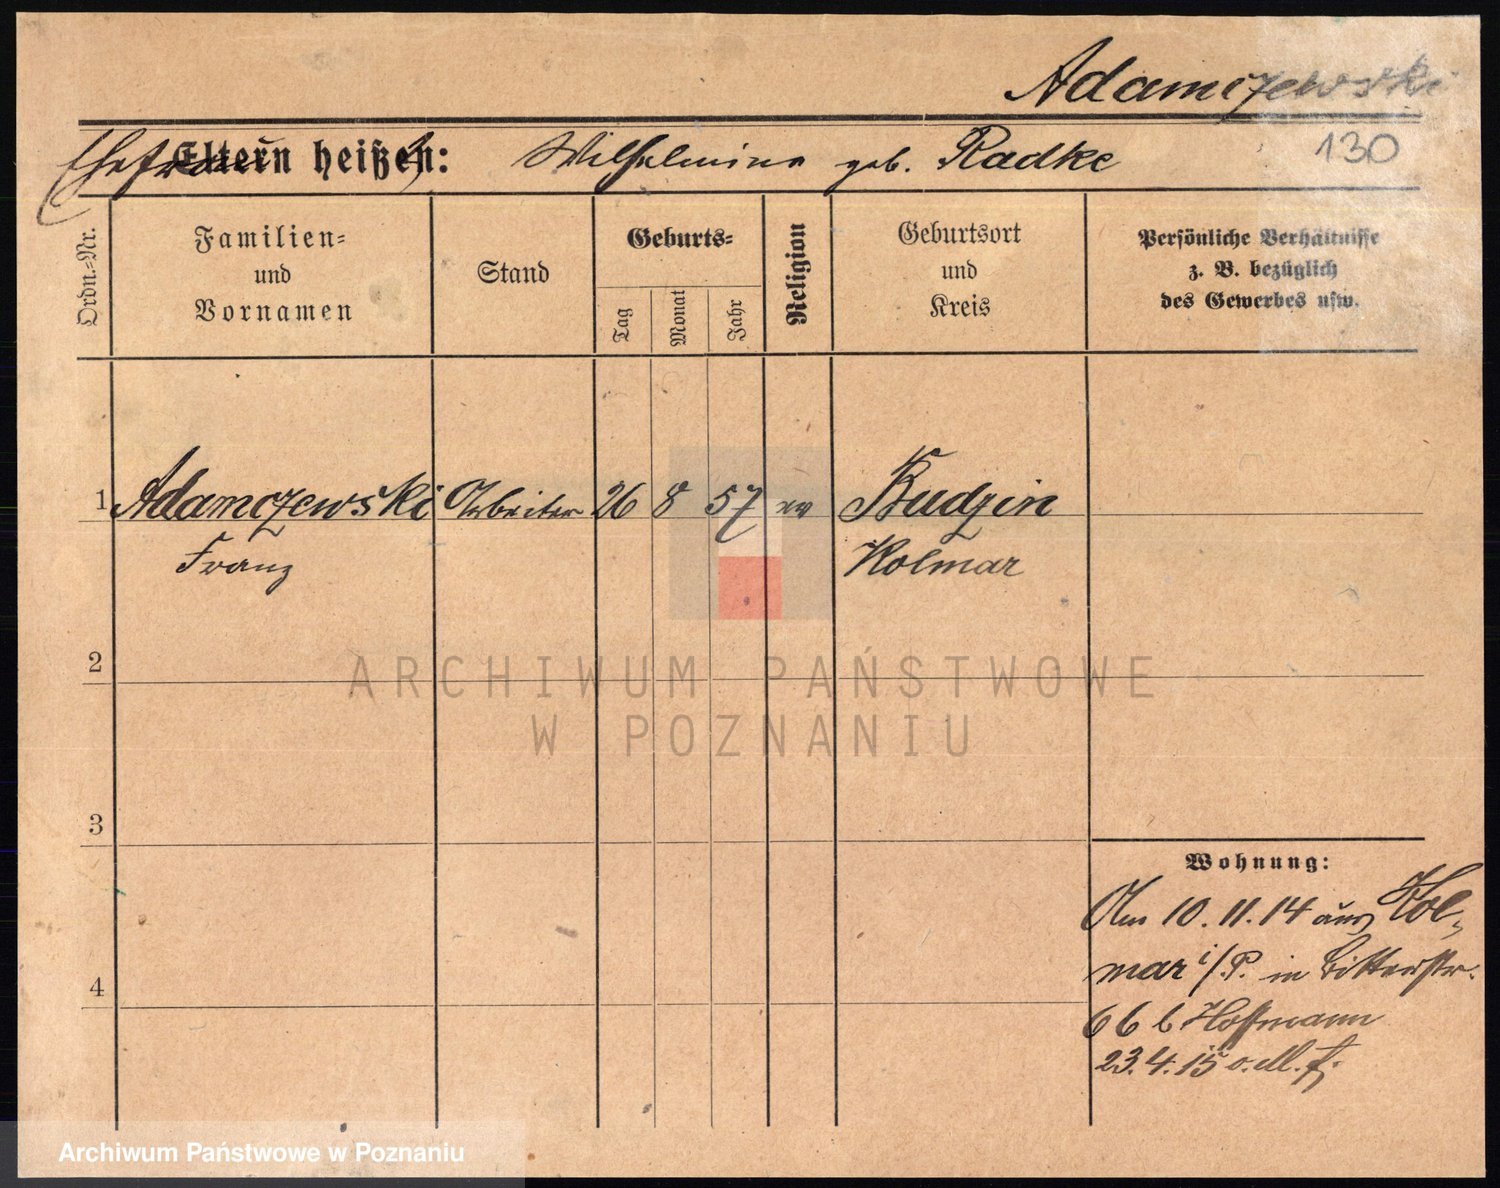 Adamczewski
130
Ehefrau Eltern heißen: Wilhelmine geb. Radke
Ordn.-Nr.
Familien-
und
Vornamen
Stand
Geburts-
Tag
Monat
Jahr
Religion
Geburtsort
und
Kreis
Persönliche Verhältnisse
z. B. bezüglich
des Gewerbes usw.
1 Adamczewski Arbeiter 26 8 57 ev Budzin
Franz Kolmar
2
3
4
Wohnung:
Am 10.11.14 aus Kol-
mar i/P. in
66 b Hoffmann
23.4.15 o.M.f.
ARCHIWUM PAŃSTWOWE
W POZNANIU
Archiwum Państwowe w Poznaniu